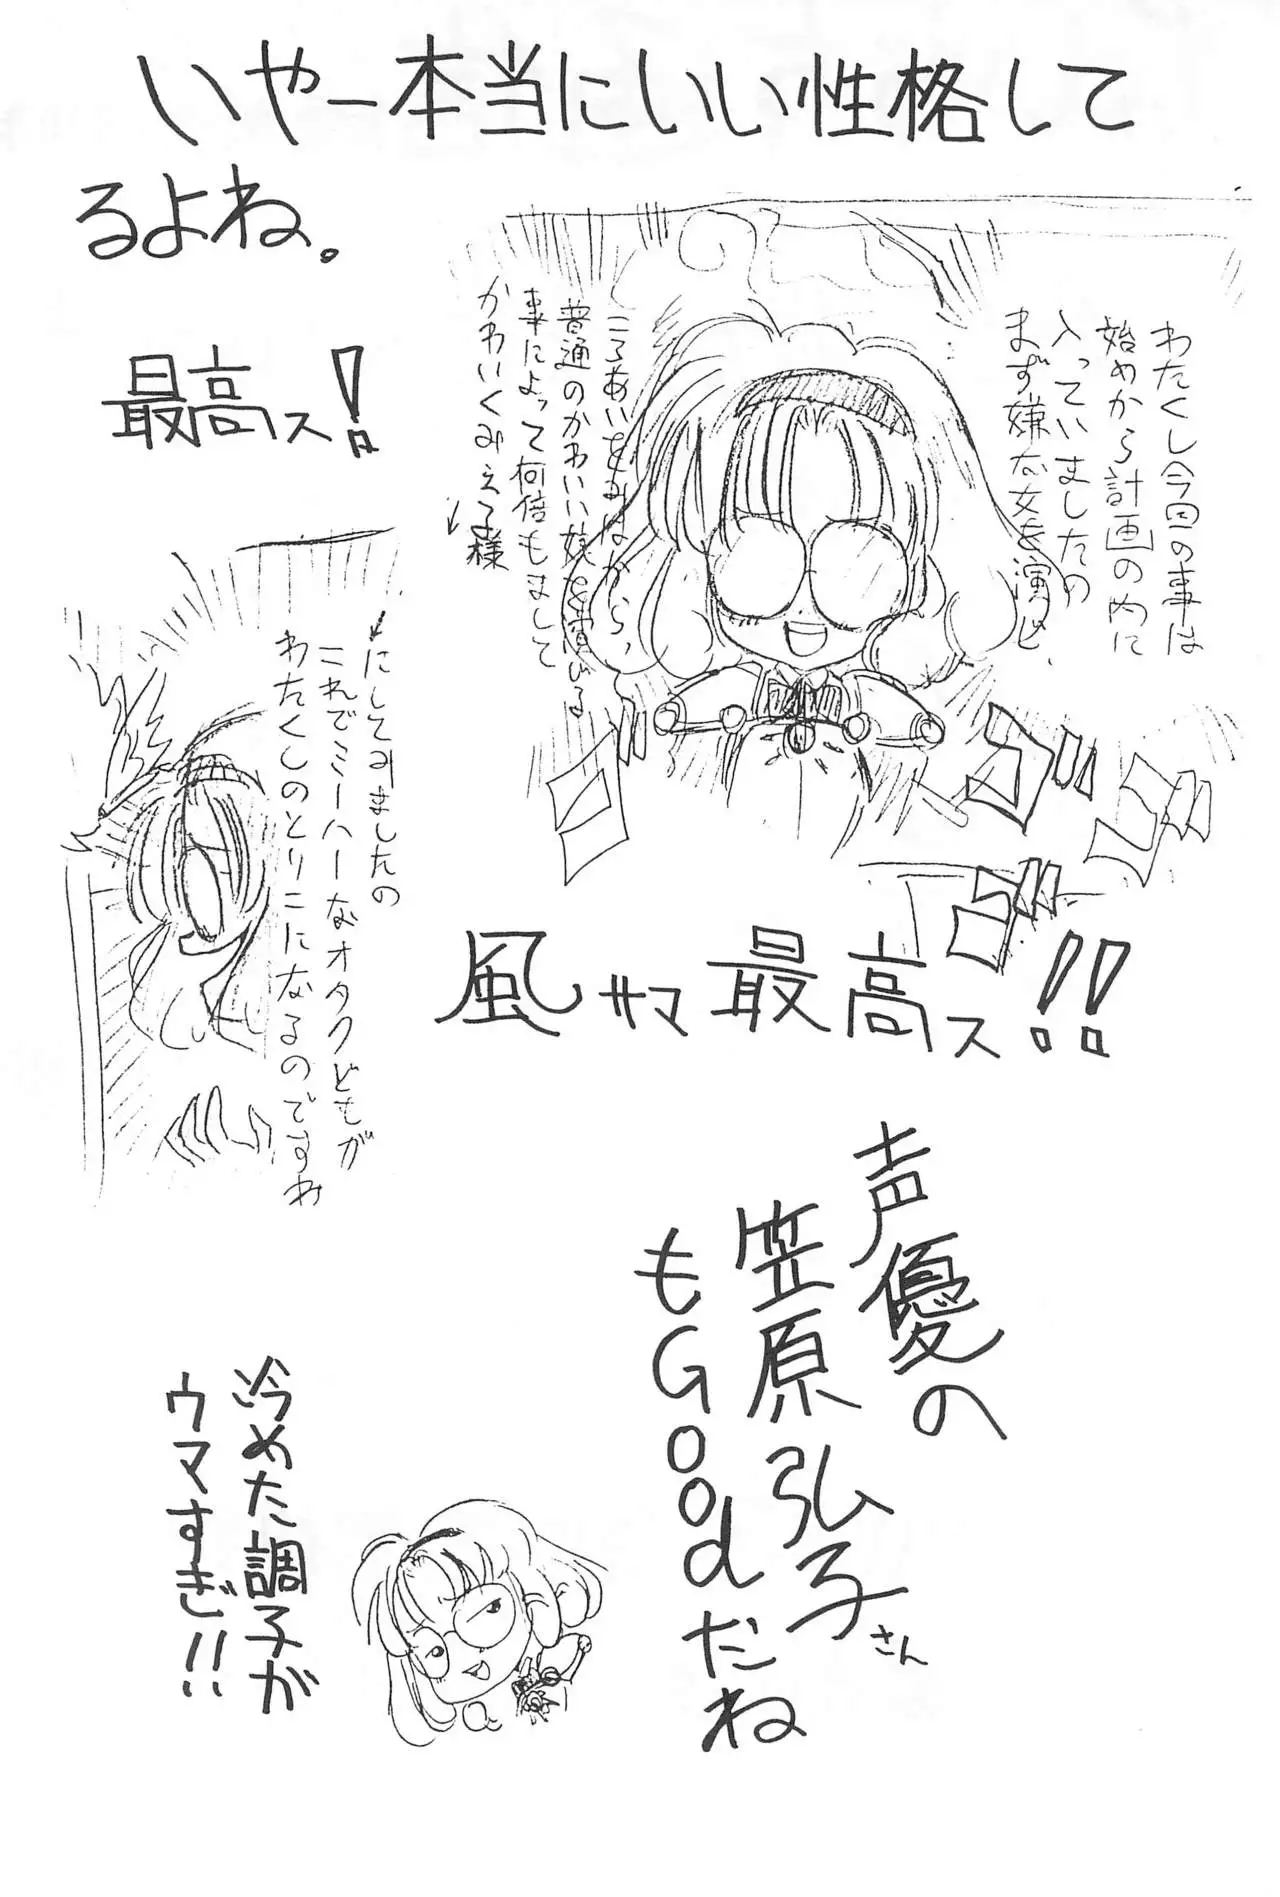 いやー本当にいい性格して
るよね。
最高ス!
わたくし今回の事は
始めから計画の内に
入っていましたの
まず嫌な女を演じ、
ころあいをみはからい、
普通のかわいい娘を演じる
事によって何倍もまして
かわいくみえる様
にしてみましたの
これでミーハーなオタクどもが
わたくしのとりこになるのですわ
ゴゴゴ
風サマ最高ス!!
声優の
笠原弘子さん
もGoodだね
冷めた調子が
ウマすぎ!!